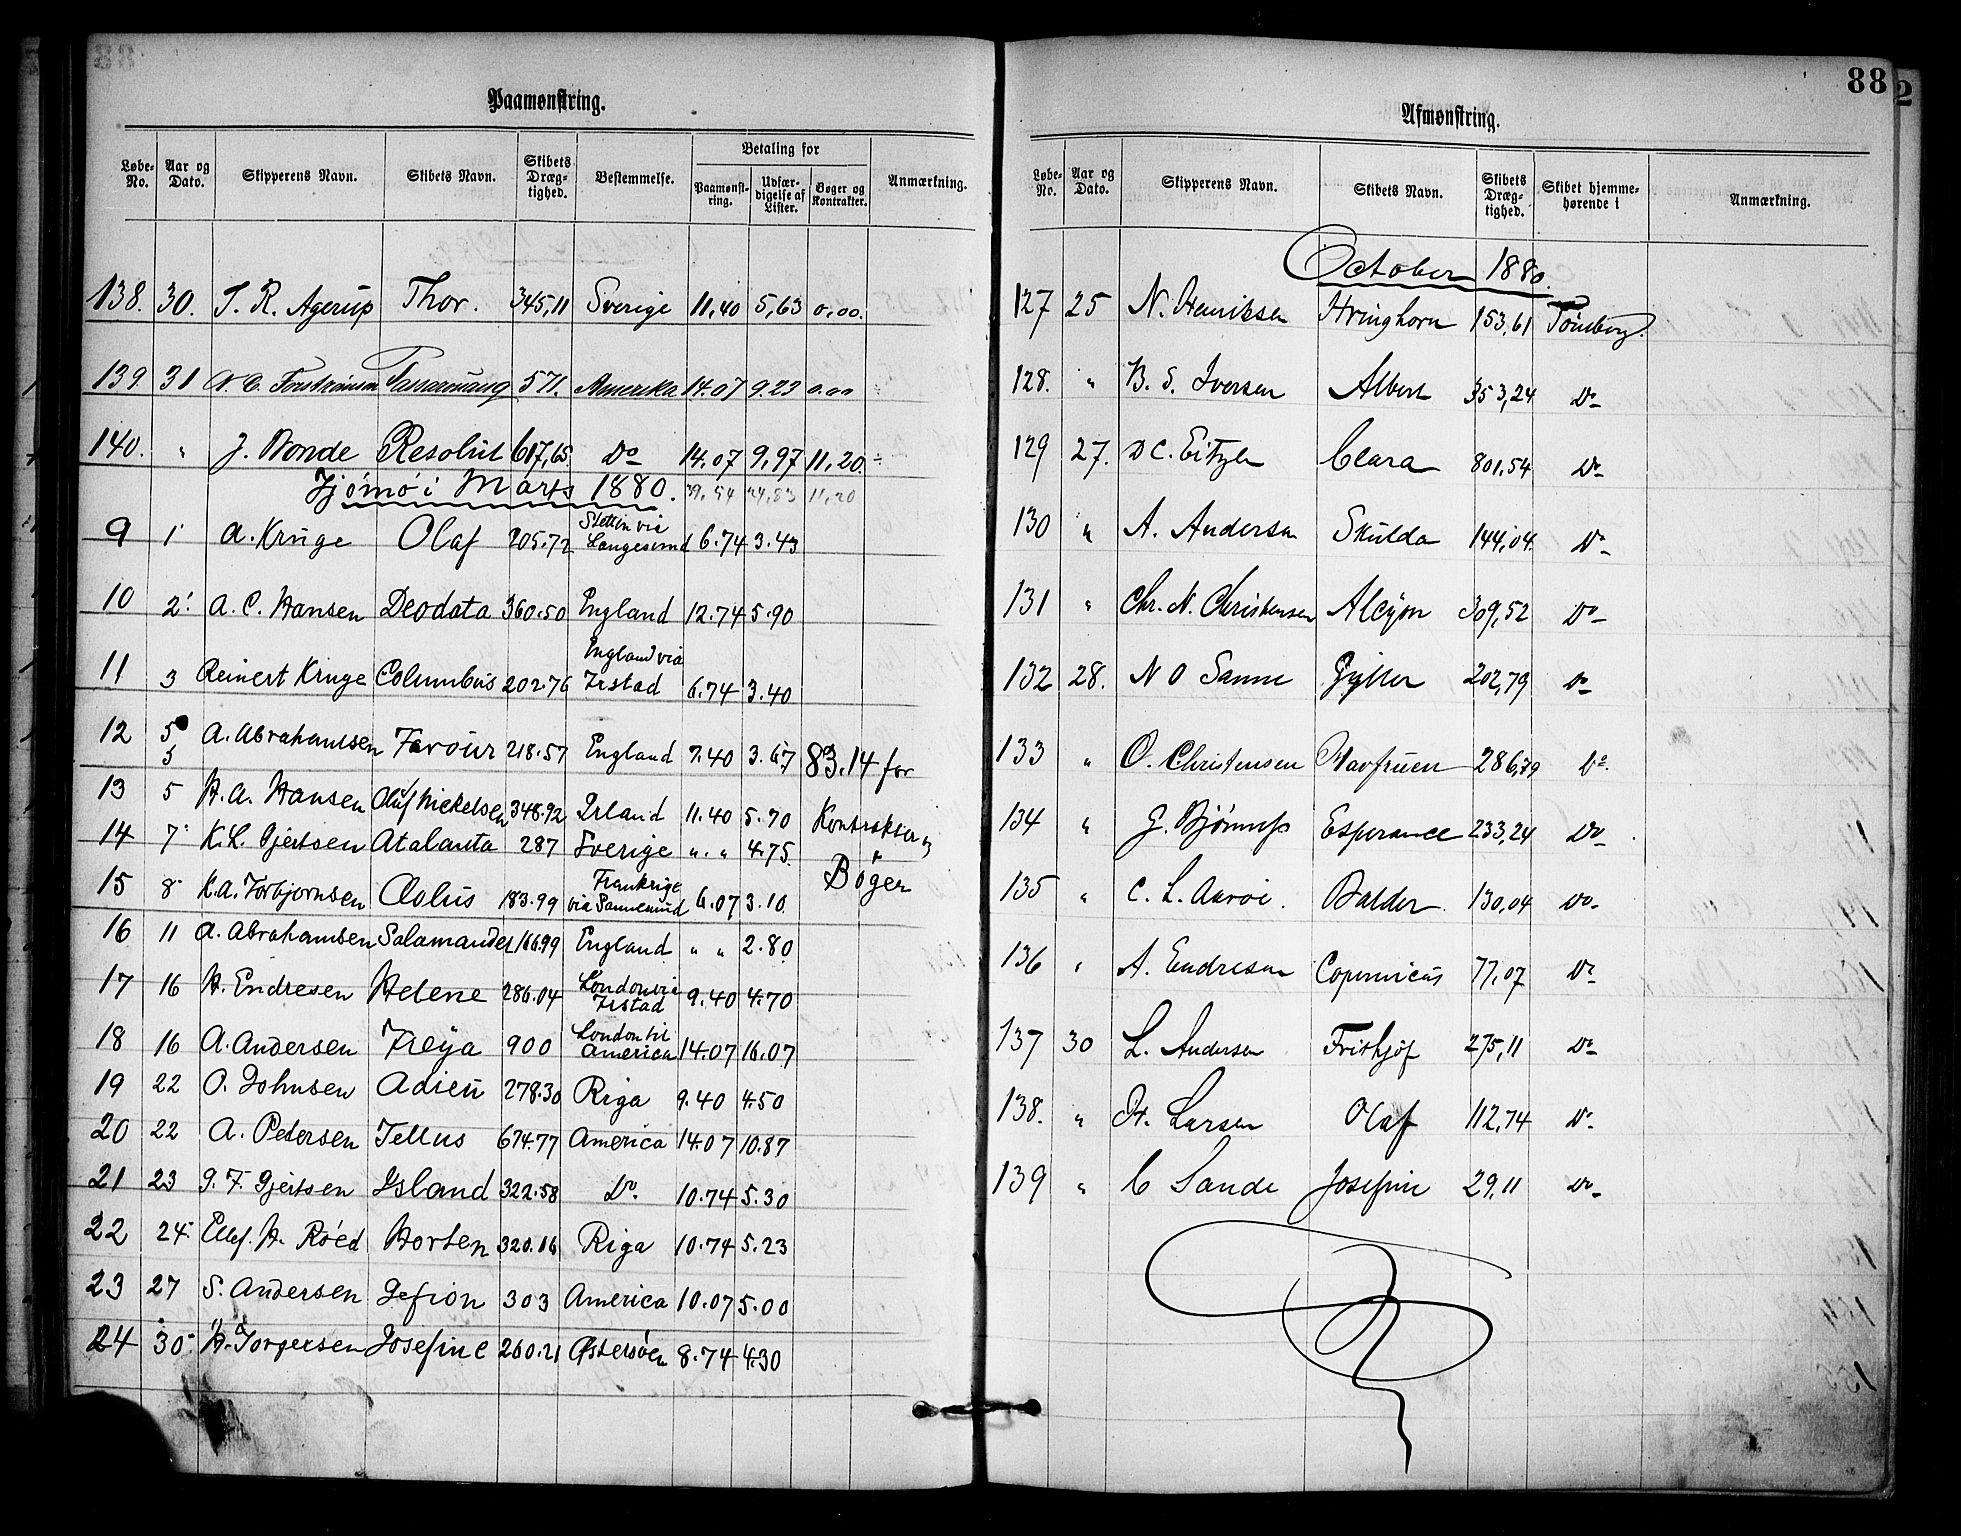 88
Paamønstring.
Løbe-No. Aar og Dato. Skipperens Navn. Skibets Navn. Skibets Dræg-tighed. Bestemmelse. Betaling for Paamønst-ring. Udfær-digelse af Lister. Bøger og Kontrakter. Anmærkning.
138. 30. T. R. Agerup Thor. 345,11 Sverige 11,40 5,63 0,00.
139 31 571. Amerika 14.07 9.23 0.00 ÷
140. " J. Bonde Resolut 617,65 Do 14.07 9,97 11,20 ÷
Tjømø i Marts 1880. 39,54 24,83 11,20
9 1 A. Kruge Olaf 205.72 Stettin via Langesund 6.74 3.43
10 2. A. C. Hansen Deodata 360.50 England 12.74 5.90
11 3 Reinert Kruge Columbus 202.76 England via Irstad 6.74 3.40
12 5 A. Abrahamsen Favour 218.57 England 7.40 3.67 83.14 for
5
13 5 H. A. Hansen Oluf Nickelsen 348.92 Irland 11.40 5.70 Kontrakter og
14 7 K. L. Gjertsen Atalanta 287 Sverige ". " 4.75. Bøger
15 8 K. A. Torbjornsen Aolus 183.99 Frankrige via Sannesund 6.07 3.10
16 11 A. Abrahamsen Salamander 166.99 England " " 2.80
17 16 H. Endresen Helene 286.04 London via Irstad 9.40 4.70
18 16 A. Andersen Freya 900 London til America 14.07 16.07
19 22 O. Johnsen Adieu 278.30 Riga 9.40 4.50
20 22 A. Petersen Tellus 674.77 America 14.07 10.87
21 23 G. F. Gjertsen Island 322.58 Do. 10.74 5.30
22 24 Ellef. H. Røed Horten 320.16 Riga 10.74 5.23
23 27 S. Andersen Gefion 303 America 10.07 5.00
24 30 H. Torgersen Josefine 260.21 Østersøen 8.74 4.30
88
2
Afmønstring.
Løbe-No. Aar og Dato. Skipperens Navn. Skibets Navn. Skibets Dræg-tighed. Skibet hjemme-hørende i Anmærkning.
October 1880.
127 25 N. Henriksen Hringhorn 153,61 Tønsberg.
128. " B. S. Iversen Albert 353,24 Do
129 27. D C. Eitzen Clara 801,54 Do
130 " A. Andersen Skulda 144,04. Do
131 " Chr. N. Christensen Alcyon 309,52 Do
132 28. N O Sanne Gyller 202,79 Do
133 " O. Christensen Havfruen 286,79 Do.
134 " J. Bjønnes Esperance 233,24 Do
135 " C. L. Aarøe. Balder 130,04 Do
136 " A. Endresen Copernicus 77,07 Do
137 30 L. Andersen Frithjof 275,11 Do
138. " H. Larsen Olaf 112,74 Do
139 " C Sande Josefine 29,11 Do